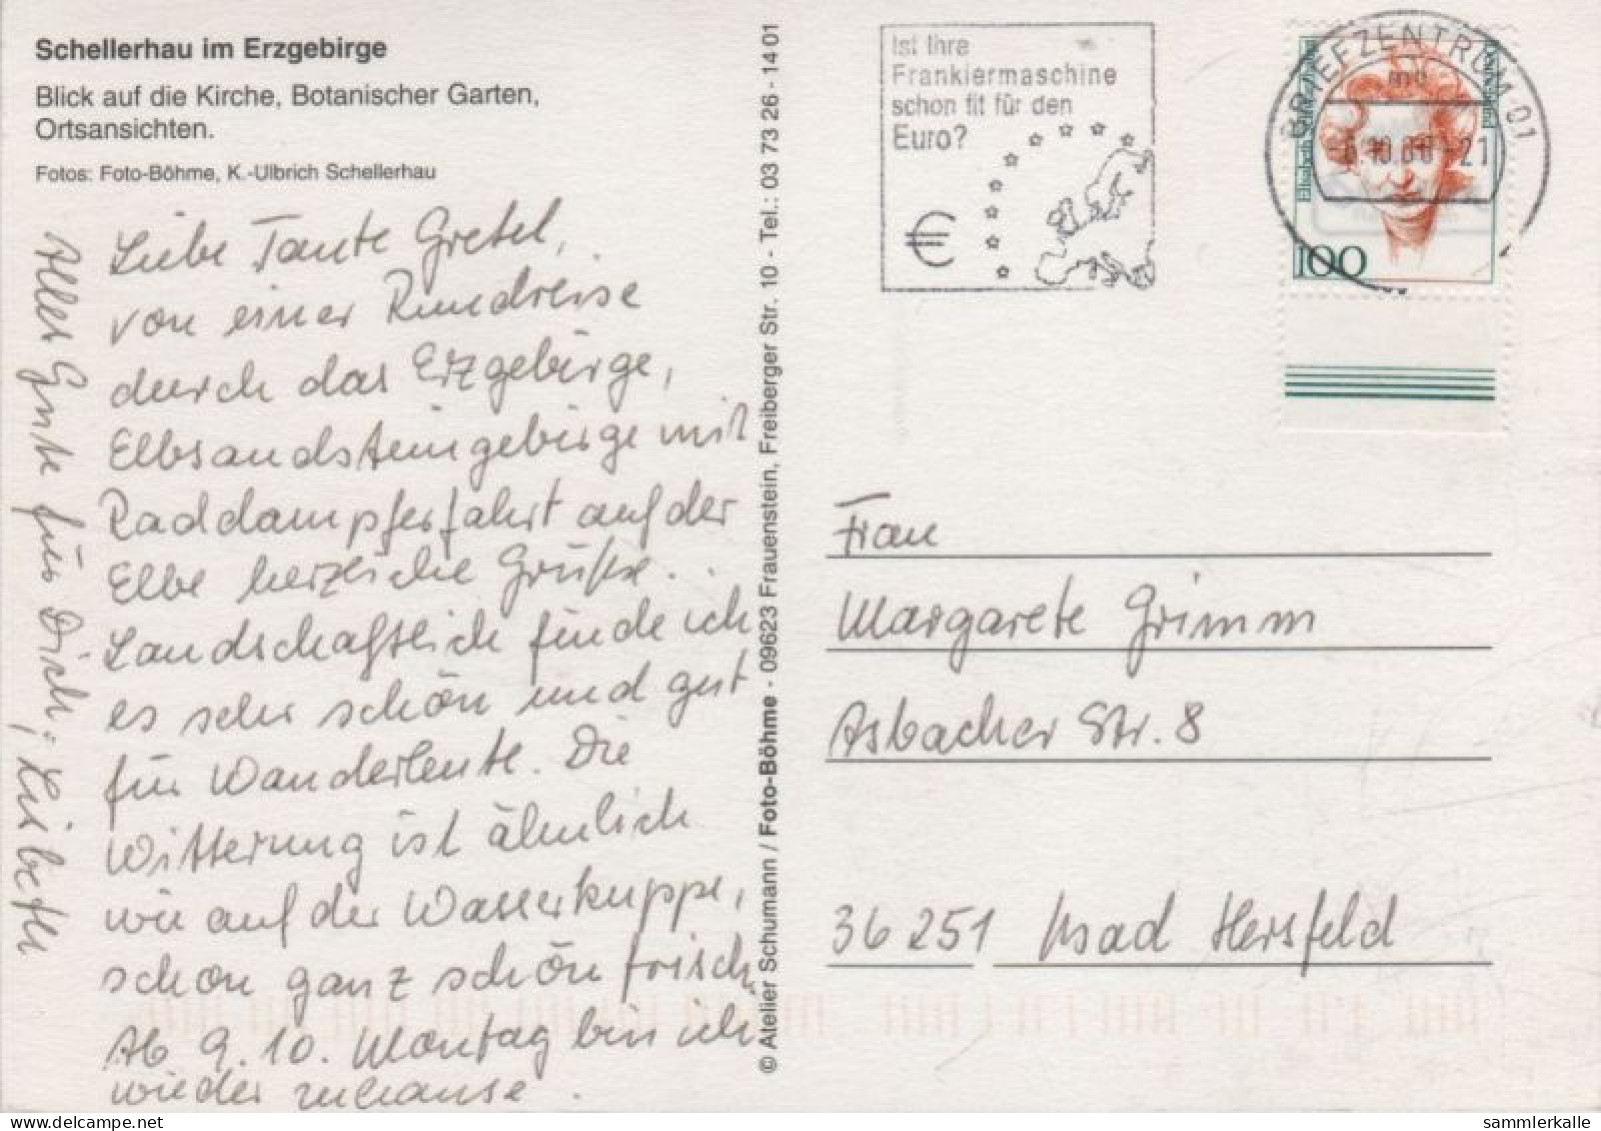 Schellerhau im Erzgebirge
Blick auf die Kirche, Botanischer Garten,
Ortsansichten.
Fotos: Foto-Böhme, K.-Ulbrich Schellerhau
Liebe Tante Gretel,
von einer Rundreise
durch das Erzgebirge,
Elbsandsteingebirge mit
Raddampferfahrt auf der
Elbe herzliche Grüße.
Landschaftlich finde ich
es sehr schön und gut
für Wanderleute. Die
Witterung ist ähnlich
wie auf der Wasserkuppe,
schon ganz schön frisch.
Ab 9.10. Montag bin ich
wieder zuhause.
Alles Gute für Dich, Lisbeth
© Atelier Schumann / Foto-Böhme - 09623 Frauenstein, Freiberger Str. 10 - Tel.: 03 73 26 - 14 01
Ist Ihre
Frankiermaschine
schon fit für den
Euro?
€
BRIEFZENTRUM 01
mb
-21
Deutschland
100
Frau
Margarete Grimm
Asbacher Str. 8
36251 Bad Hersfeld
sammlerkalle